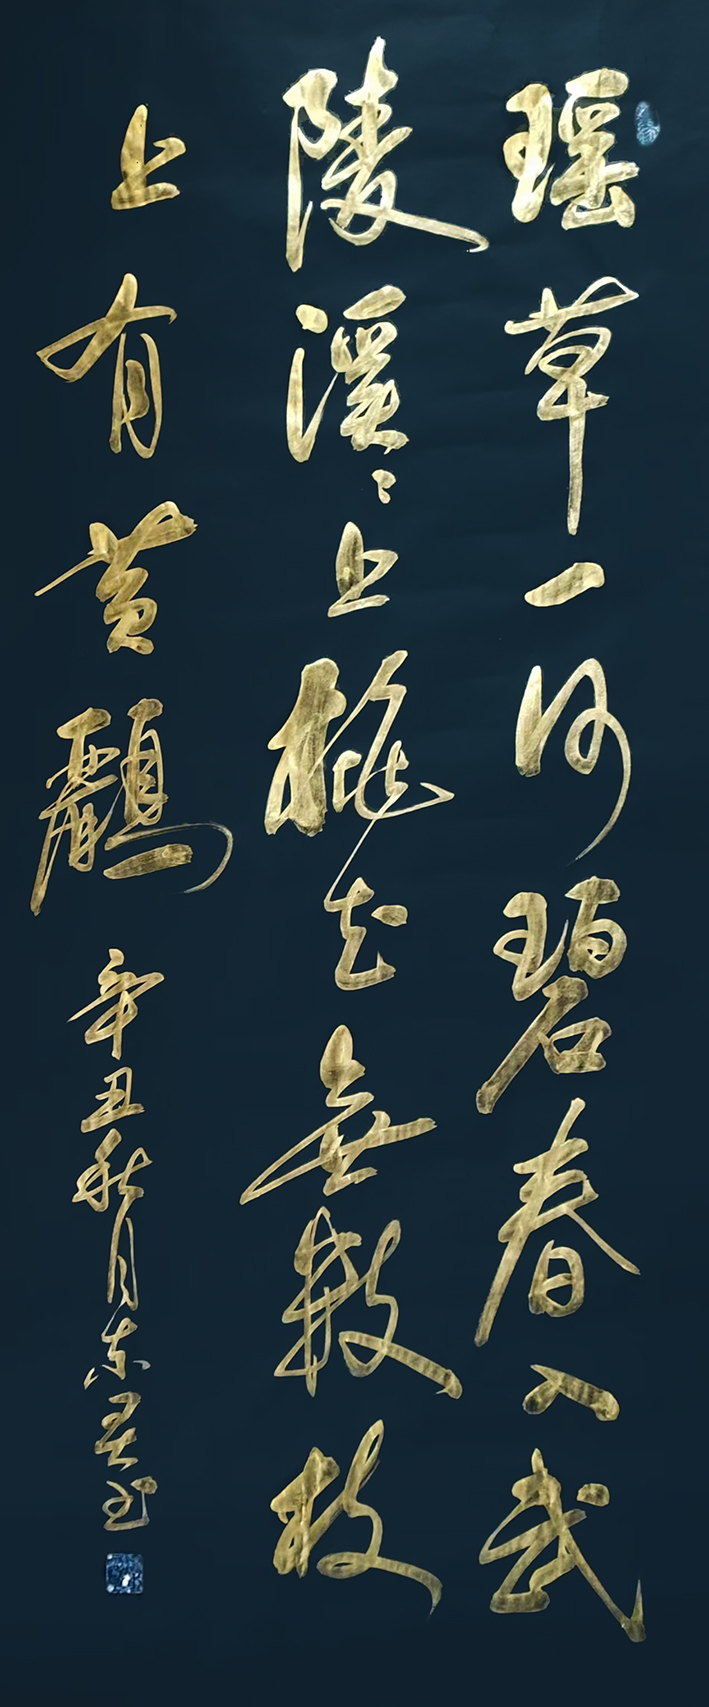 瑶草一何碧春入武
陵溪〻上桃花無數枝
上有黄鸝辛丑秋月东昊书